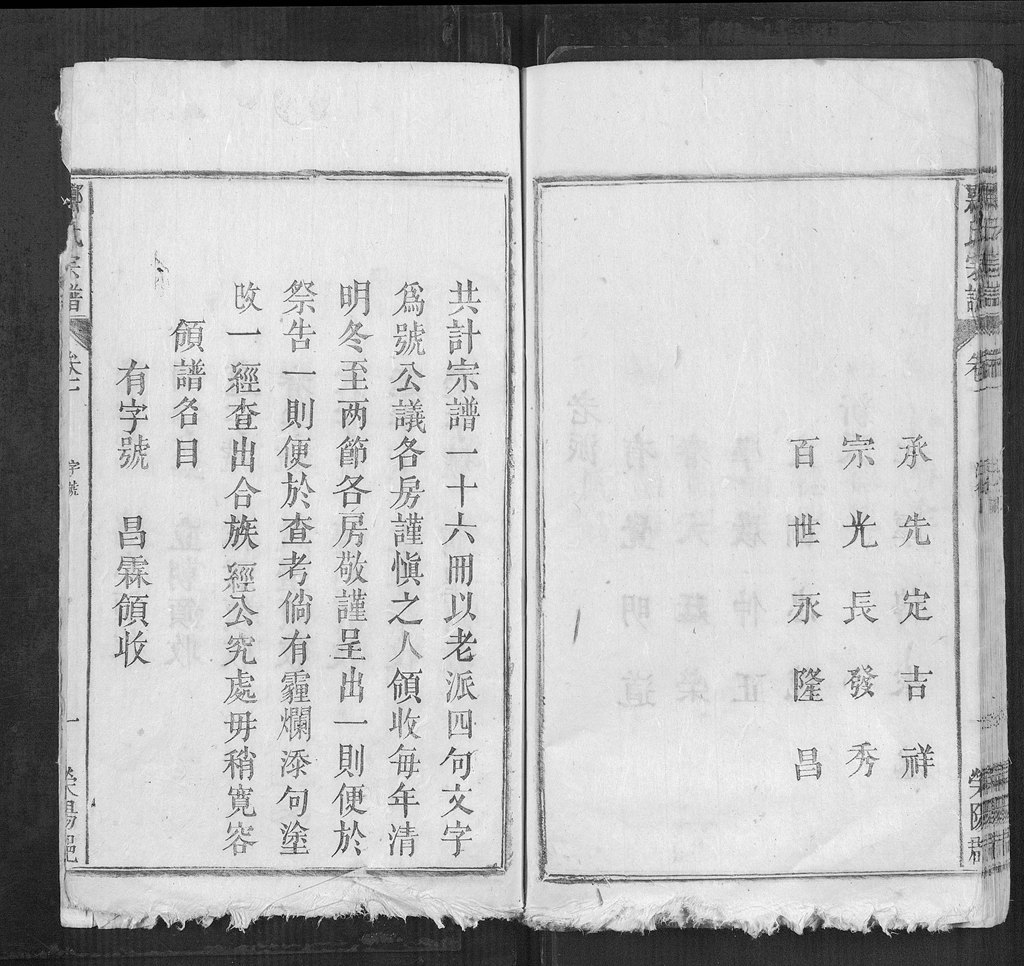 承先定吉祥
宗光長發秀
百世永隆昌
共計宗譜一十六冊以老派四句文字
為號公議各房謹慎之人領收每年清
明冬至两節各房敬謹呈出一則便於
祭告一則便於查考倘有霾爛添句塗
改一經查出合族經公究處毋稍寬容
領譜名目
有字號 昌霖領收
鄭氏宗譜 卷 字號 一